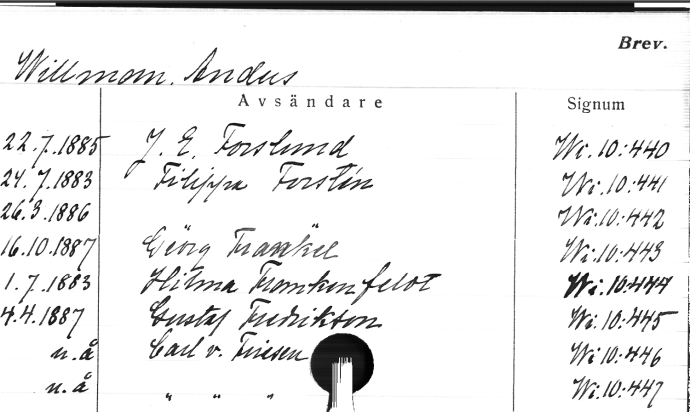 Brev.
Willman. Anders
Avsändare Signum
22.7.1885 J. E. Forslund Wi.10:440
24.7.1883 Filippa Forstén Wi.10:441
26.3.1886 Wi:10:442
16.10.1887 Georg Frankel Wi:10:443
1.7.1883 Hilma Frankenfeldt Wi.10:444
4.4.1887 Gustaf Fredrikson Wi.10:445
n.å Carl v. Friesen Wi:10:446
n.å " " " Wi.10:447